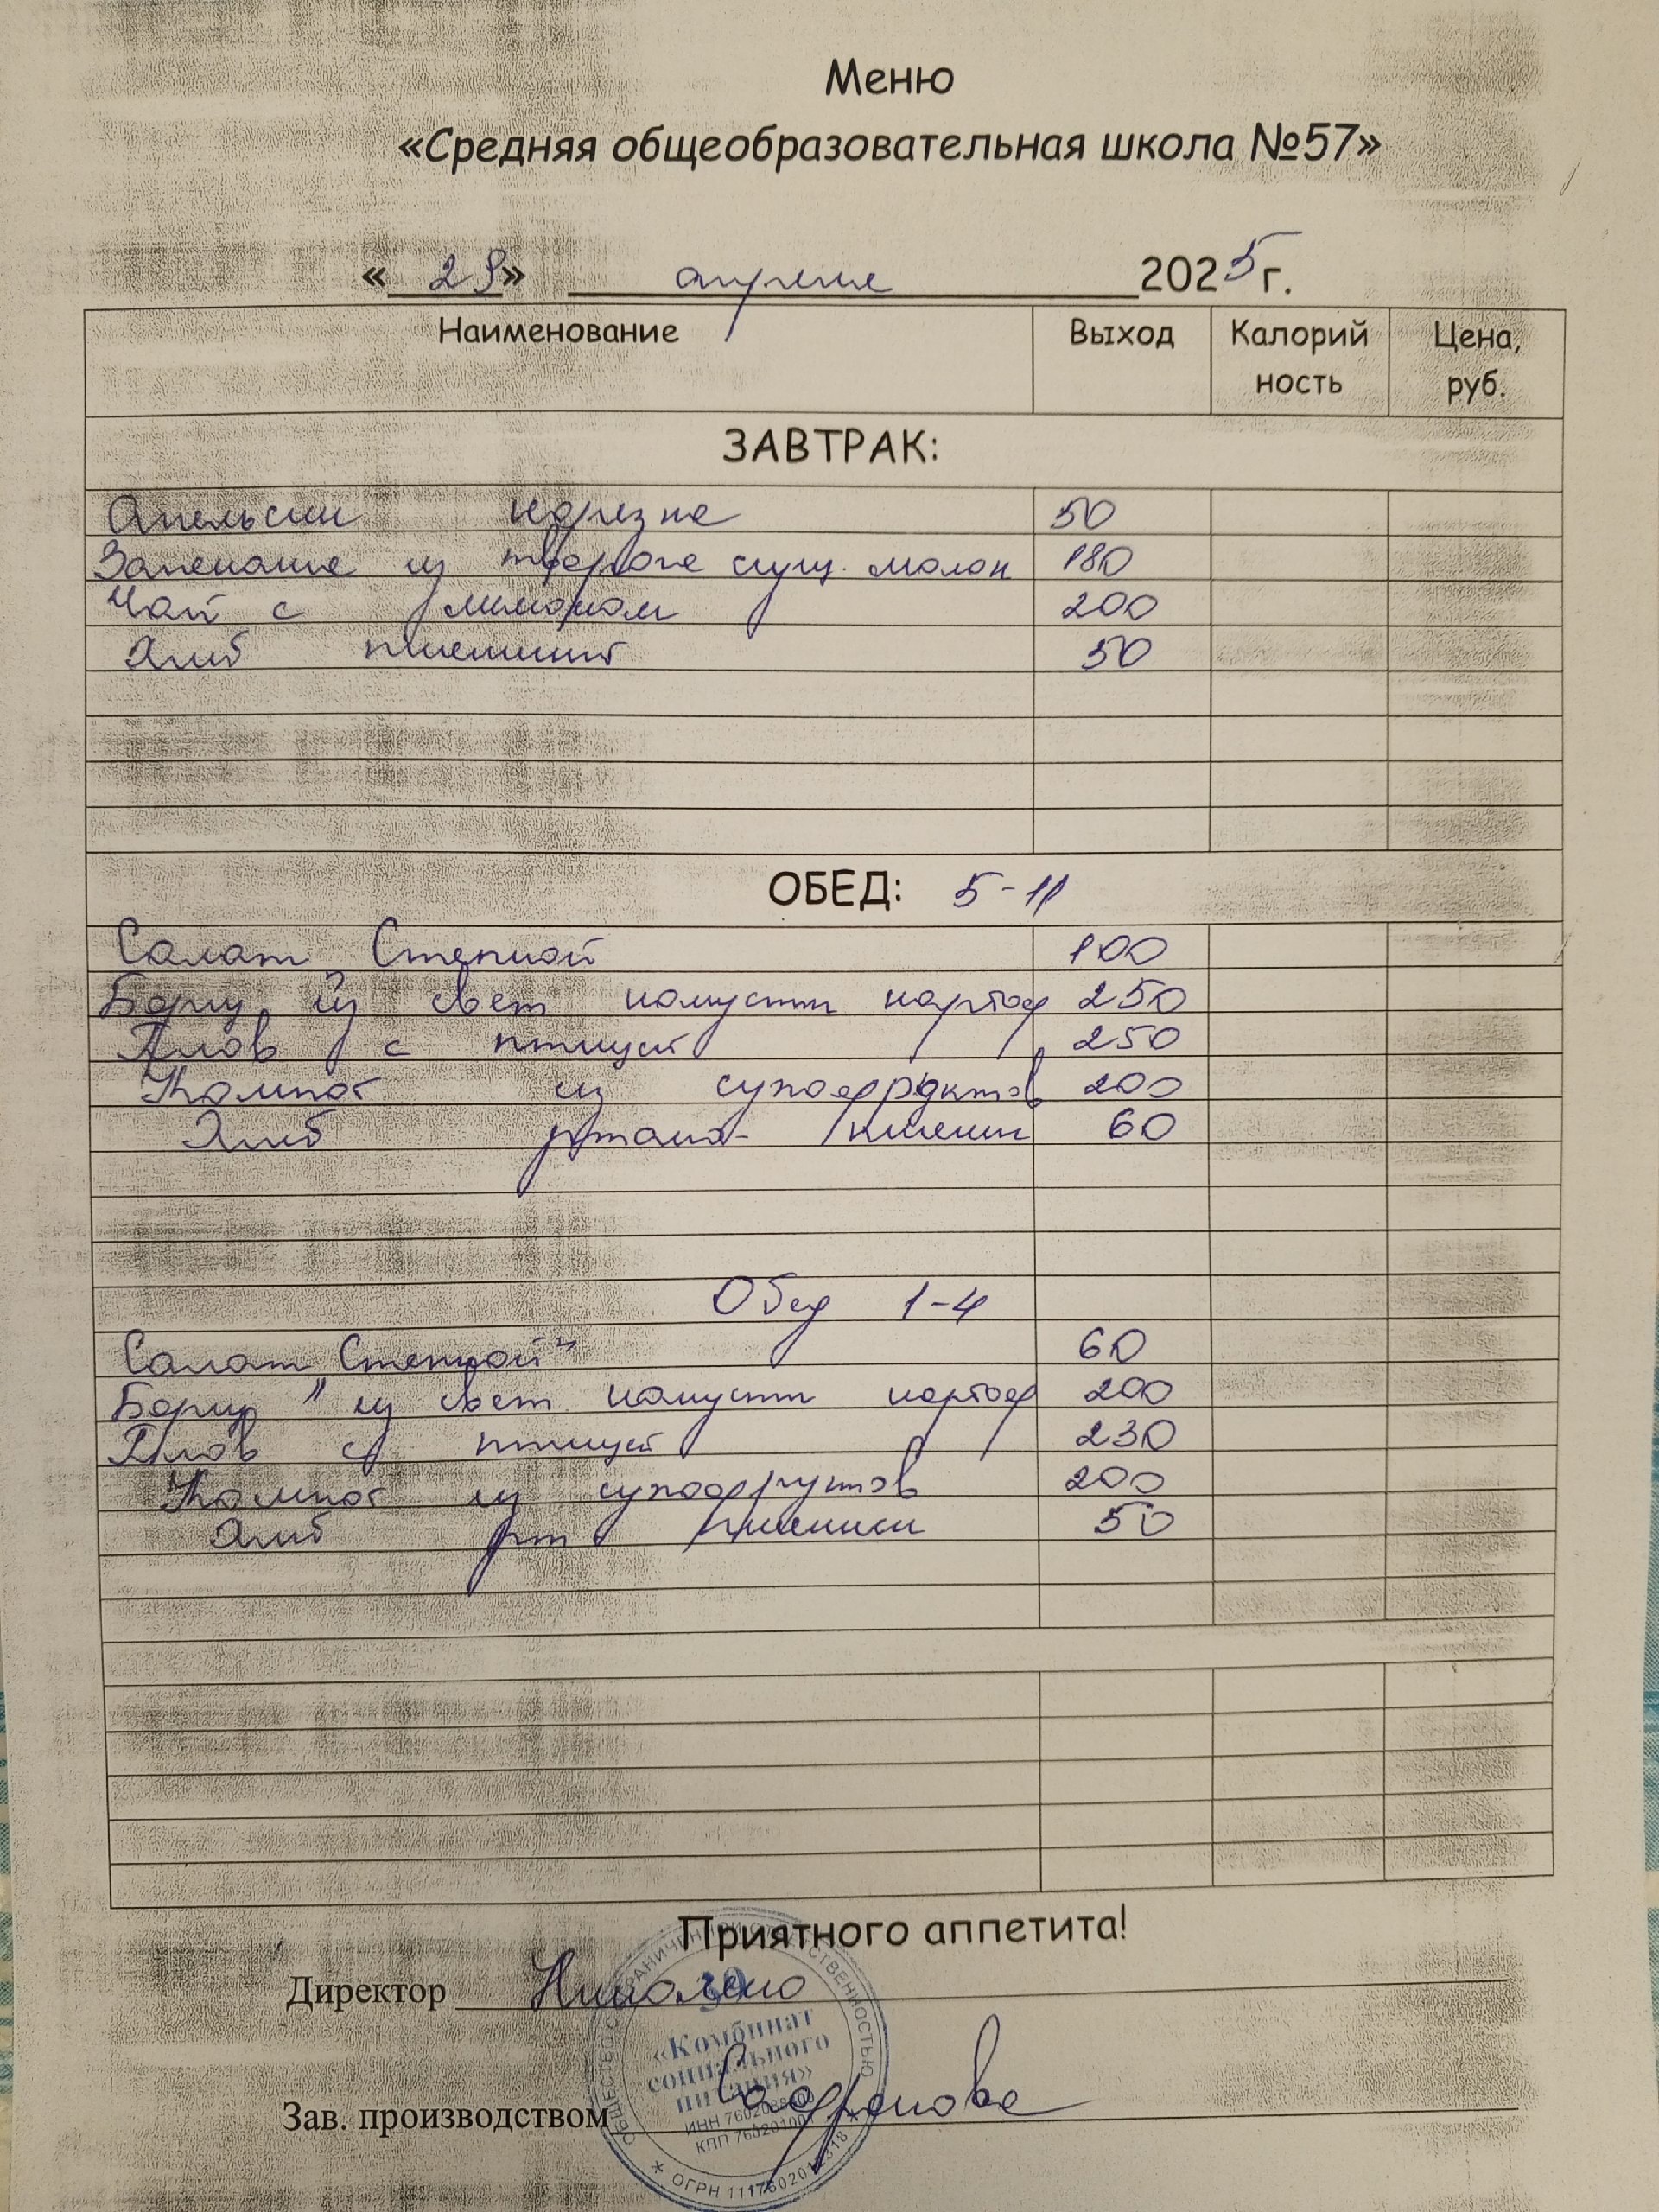 Меню
«Средняя общеобразовательная школа №57»
«29» апреля 2025 г.
Наименование Выход Калорий Цена,
ность руб.
ЗАВТРАК:
Апельсин нарезка 50
Запеканка из творога сгущ. молок 180
Чай с лимоном 200
Хлеб пшенич 50
ОБЕД: 5-11
Салат Степной 100
Борщ из свеж капусты картоф 250
Плов с птицей 250
Компот из сухофруктов 200
Хлеб ржано- пшенич 60
Обед 1-4
Салат "Степной" 60
Борщ из свеж капусты картоф 200
Плов с птицей 230
Компот из сухофруктов 200
Хлеб рж пшенич 50
Приятного аппетита!
Директор
«Комбинат
социального
питания»
Зав. производством Сафронова